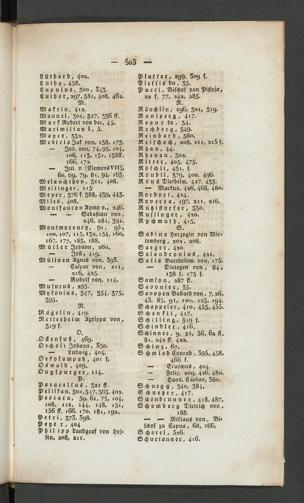 — 503 —
Lürhard, 402.
Luthy, 458.
Lupulus, 300, 343.
Luther, 297, 381, 408, 462.
M.
Makrin, 412.
Manuel, 301, 327, 336 ff.
Mark Robert von der, 45.
Maximilian I, 5.
Mayer, 332.
Medicis Jak. von, 158, 173.
— Joh. von, 74, 95, 104,
106, 113, 131, 138 ff.
166, 172.
— Jul. v. (Clemens VII),
60, 69, 79, 81, 94, 163.
Melanchthon, 311, 408.
Mellinger, 115
Meyer, 376 f. 388, 439, 443.
Miles, 408.
Montfaucon Aymo v., 246.
— — Sebastian von,
246, 281, 391.
Montmorency, 91, 95,
100, 107, 115, 132, 154, 160,
167, 177, 183, 188.
Müller Johann, 260,
— Jost, 419.
Müllinen Agnes von, 393.
— Caspar von, 211,
216, 425.
— Rudolf von, 114.
Musurus, 295.
Mykonius, 347, 354, 375,
395.
N.
Nägelin, 419.
Nettesheim Agrippa von,
319 f.
O.
Ochenfuß, 469.
Oechsli Johann, 350.
— Ludwig, 404.
Oekolampad, 401 f.
Oswald, 409.
Ougspurger, 114.
P.
Paracelsus, 321 ff.
Pellikan, 301, 347, 365, 402.
Pescara, 59, 61, 73, 104,
108, 118, 144, 148, 151,
156 ff. 166, 170, 181, 192.
Petri, 375, 398.
Peyer, 404
Philipp Landgraf von Hes-
sen, 208, 211.
Platter, 299, 309 f.
Plessis du, 35.
Pucci, Bischof von Pistoja,
22 f. 77, 242, 285.
R.
Räuchlin, 296, 301, 319.
Ransperg, 417.
Reaux de, 54.
Rechberg, 349.
Reinhard, 380.
Reischach, 208, 211, 215 f.
Rhan, 44.
Rhenan, 302.
Ritter, 405, 475.
Röschli, 451, f.
Röubli, 379, 400, 496.
Röust Diethelm, 427, 433.
— Markus, 426, 468, 480.
Rordorf, 424.
Rovero, 197, 211, 216.
Rutzisdorfer, 350.
Russinger, 420.
Rychmuth, 415.
S.
Sabina Herzogin von Wir-
temberg, 202, 208.
Saeger, 420.
Salandronius, 421.
Salis Bartholome von, 175.
— Dietegen von, 84,
158 f. 175 f.
Samson, 287 ff.
Savonier, 35.
Savoyen Bastard von, 7, 26,
43, 83, 91, 100, 125, 194.
Schappeler, 410, 435, 455.
Schenkli, 417.
Schilling, 319 f.
Schindler, 416.
Schinner, 9, 32, 36, 62 ff.
81, 242 ff. 422.
Schinz, 67.
Schmied Conrad, 395, 458,
466 f.
— Erasmus, 404.
— Felix, 209, 416, 480.
— Hans, Caplan, 380,
Schnegg, 340, 384.
Schneyer, 417.
Schönbrunner, 418, 487.
Schomberg Dietrich von,
188.
— — Niklaus von, Bi-
schof zu Capua, 68, 166.
Schorel, 326.
Schurtanner, 416.